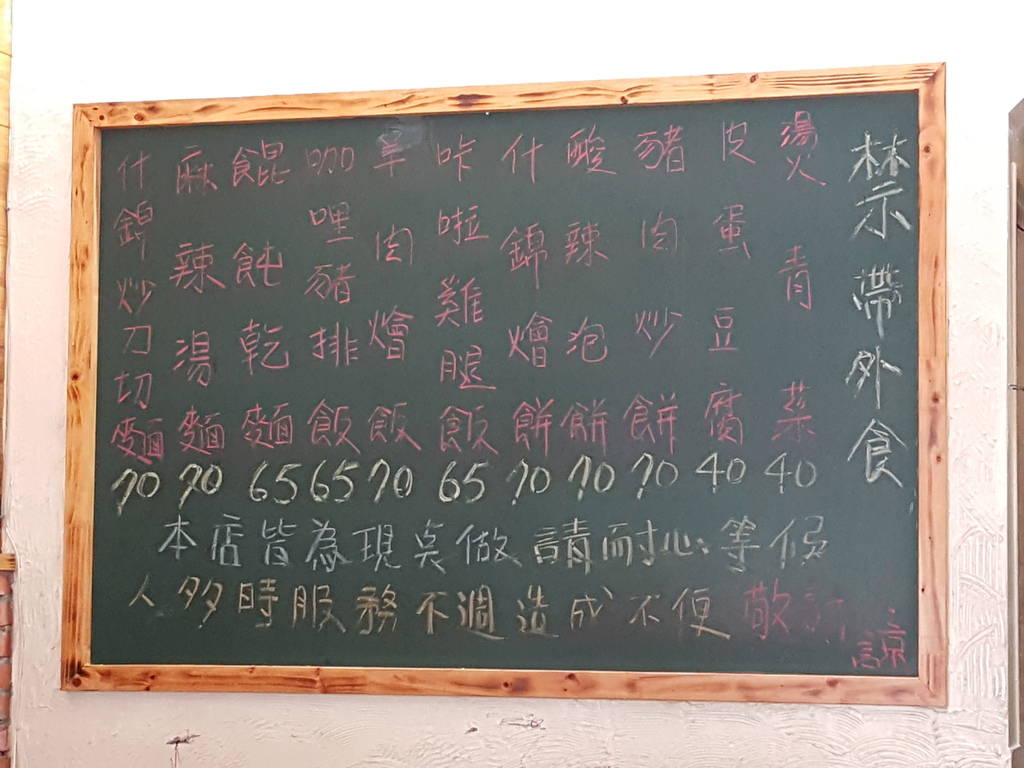 禁帶外食
燙青菜40
皮蛋豆腐40
豬肉炒餅70
酸辣泡餅70
什錦燴餅70
咔啦雞腿飯65
羊肉燴飯70
咖哩豬排飯65
餛飩乾麵65
麻辣湯麵70
什錦炒刀切麵70
本店皆為現奌做請耐心等候
人多時服務不週造成不便敬 諒